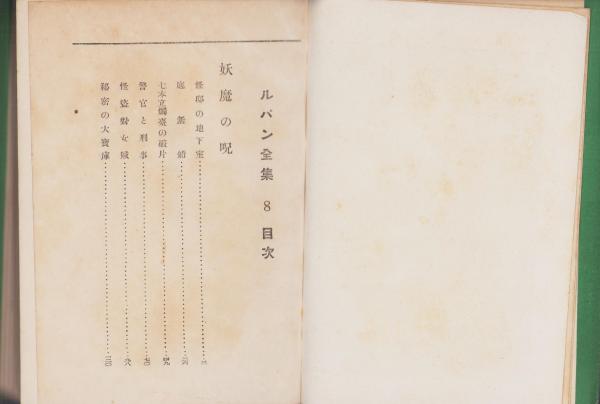 ルパン全集 8 目次
妖魔の呪
怪邸の地下室
底無船
七本立燭臺の破片
警官と刑事
怪盗對女賊
秘密の大寶庫